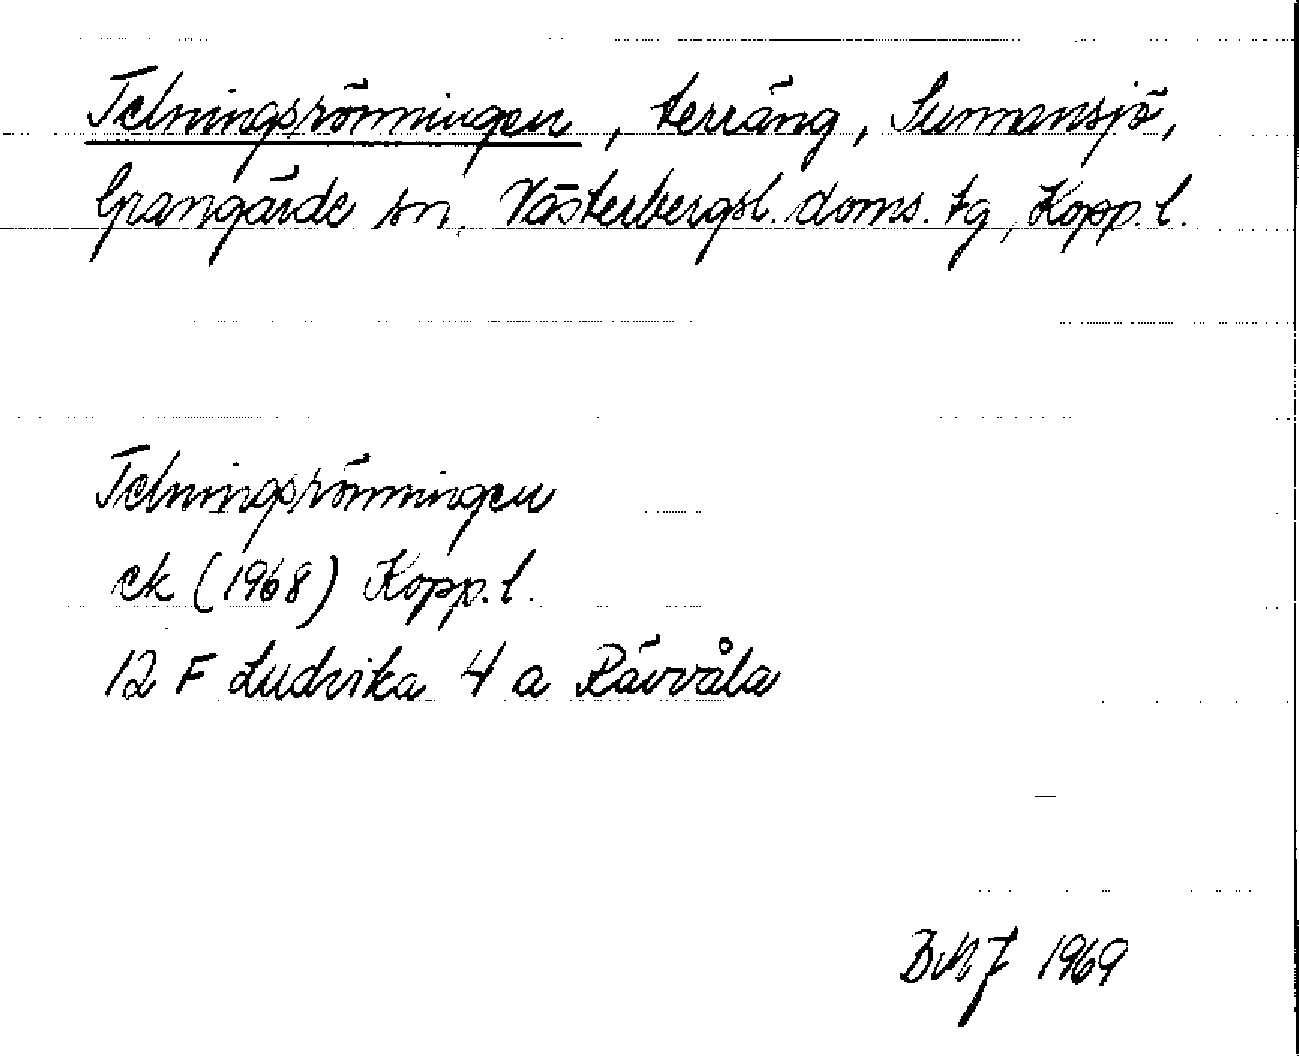 Telningsrönningen, terräng, Sunnansjö,
Grangärde sn, Västerbergsl. doms. tg, Kopp. l.
Telningsrönningen
ek (1968) Kopp. l.
12 F Ludvika 4 a Rävvåla
BMJ 1969